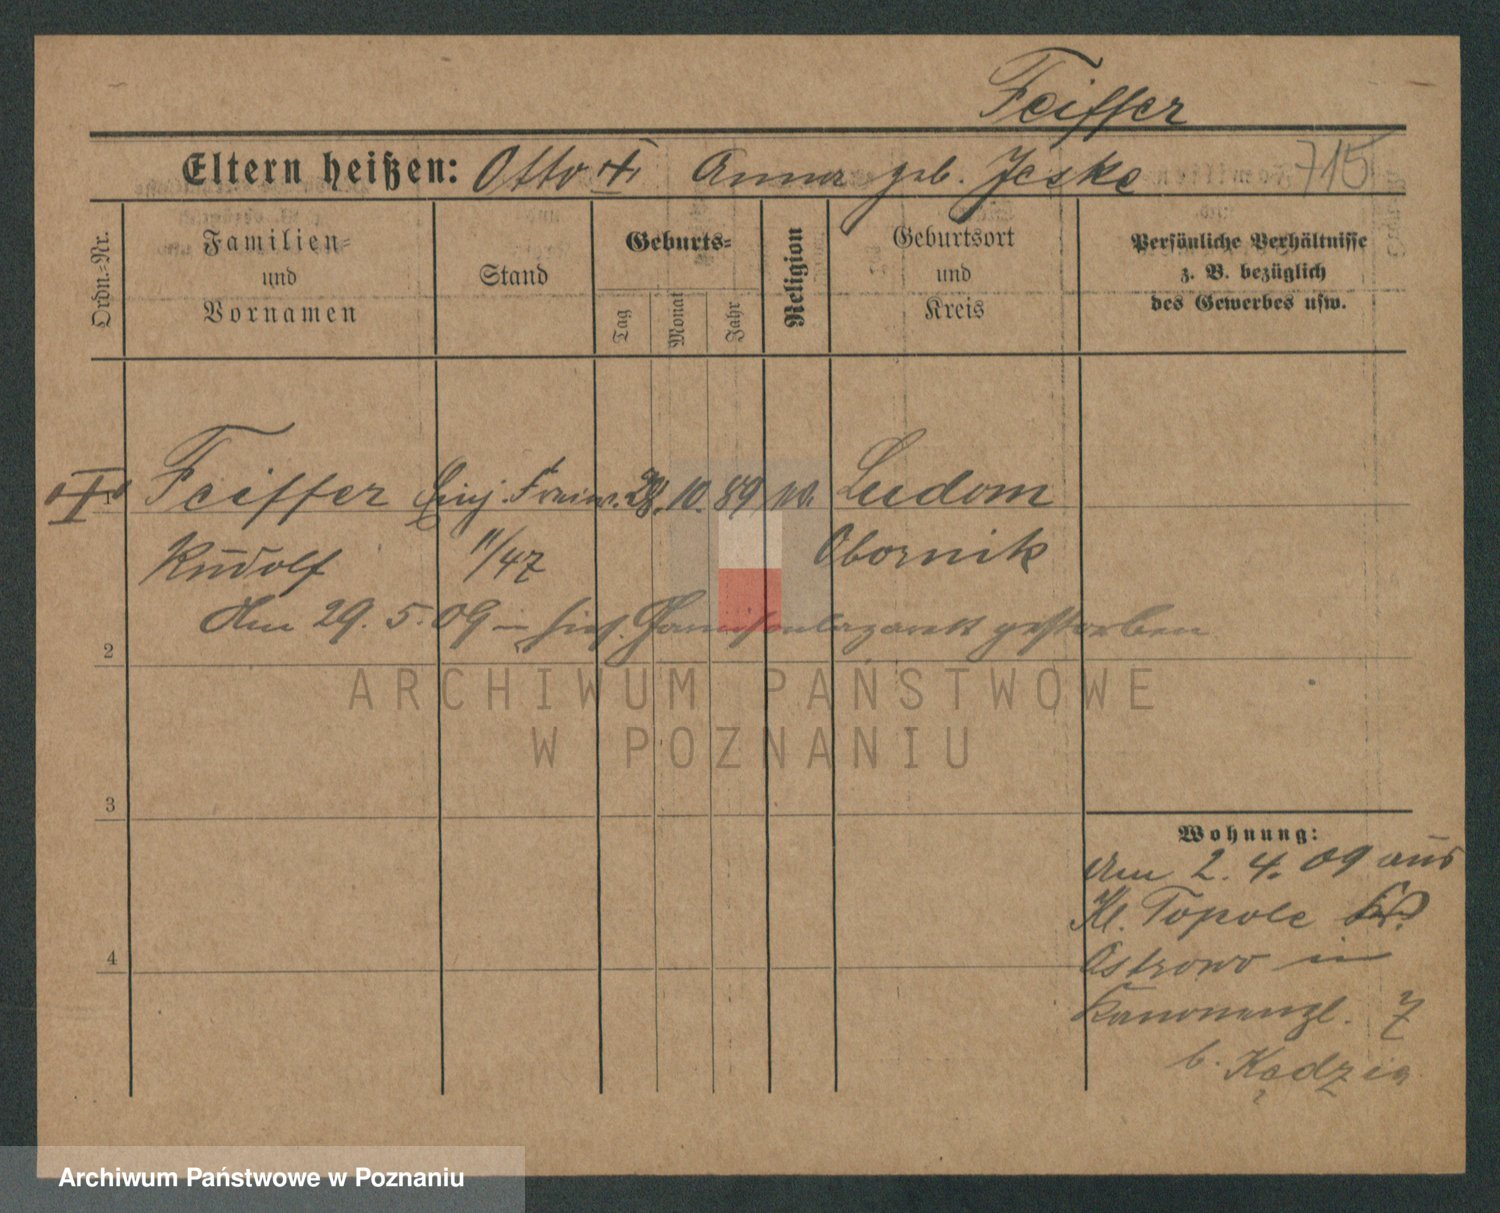 Feiffer
Eltern heißen: Otto †, Anna geb. Jeske 715
Ordn.=Nr.
Familien=
und
Vornamen
Stand
Geburts=
Tag
Monat
Jahr
Religion
Geburtsort
und
Kreis
Persönliche Verhältnisse
z. B. bezüglich
des Gewerbes usw.
1 Feiffer Einj. Freiw. 28. 10. 89 Ludom
Rudolf 11/47 Obornik
Am 29. 5. 09 – hies. Garnisonlazarett gestorben
2
3
4
Wohnung:
Am 2. 4. 09 aus
Kl. Topole
Ostrowo in
Kanonenpl. 7
b. Kędzia
ARCHIWUM PAŃSTWOWE
W POZNANIU
Archiwum Państwowe w Poznaniu